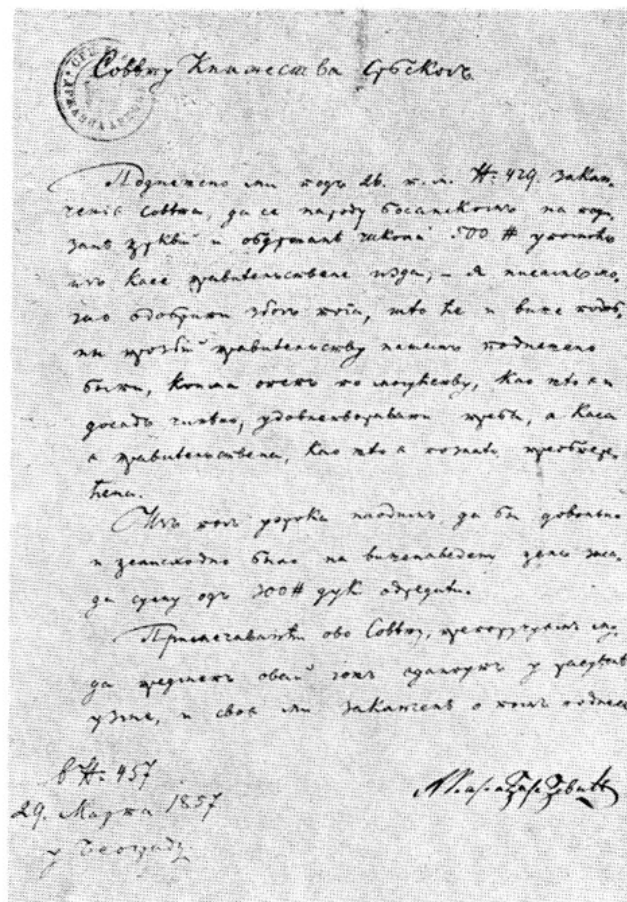 Совѣту Княжества Србскогъ
Поднешено ми подъ 26. т. м. №. 429. заклю-
ченіе Совѣта, да се народу босанскомъ на
цркви и школа 500 #
изъ Касе правительствене изда, – я нисамъ мо-
гао одобрити збогъ тога, што ће и више
правительству нашемъ поднешено
быти, коима опетъ по могућству, као што є и
досадъ чинѣно, удовлетворавати треба, а Каса
є правительствена, као што є познато, преобтере-
ћена.
Изъ тогъ узрока наодимъ, да бы довольно
и было на вышенаведену цѣль
суму одъ 300 # дук. одредити.
ово Совѣту, препоручуемъ му,
да предметъ овай іошъ єданпутъ у
узме, и свое ми заключенѣ о томъ поднесе
В №. 457
29. Марта 1857
у Београду
А Карађорђевић